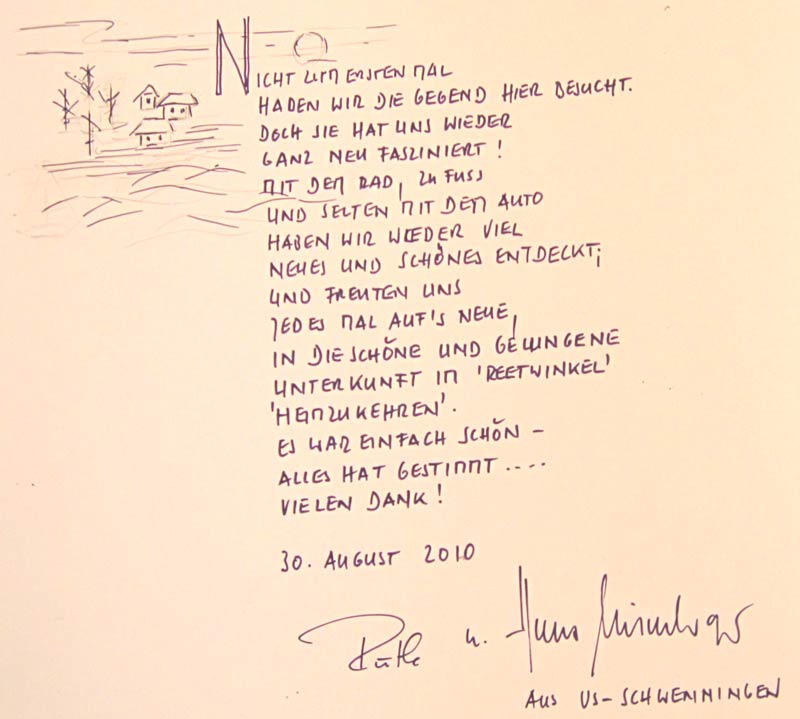 NICHT ZUM ERSTEN MAL
HABEN WIR DIE GEGEND HIER BESUCHT.
DOCH SIE HAT UNS WIEDER
GANZ NEU FASZINIERT!
MIT DEM RAD, ZU FUSS
UND SELTEN MIT DEM AUTO
HABEN WIR WIEDER VIEL
NEUES UND SCHÖNES ENTDECKT;
UND FREUTEN UNS
JEDES MAL AUF'S NEUE,
IN DIE SCHÖNE UND GELUNGENE
UNTERKUNFT IM 'REETWINKEL'
'HEIMZUKEHREN'.
ES WAR EINFACH SCHÖN –
ALLES HAT GESTIMMT ....
VIELEN DANK!
30. AUGUST 2010
u. Hans
AUS VS-SCHWENNINGEN